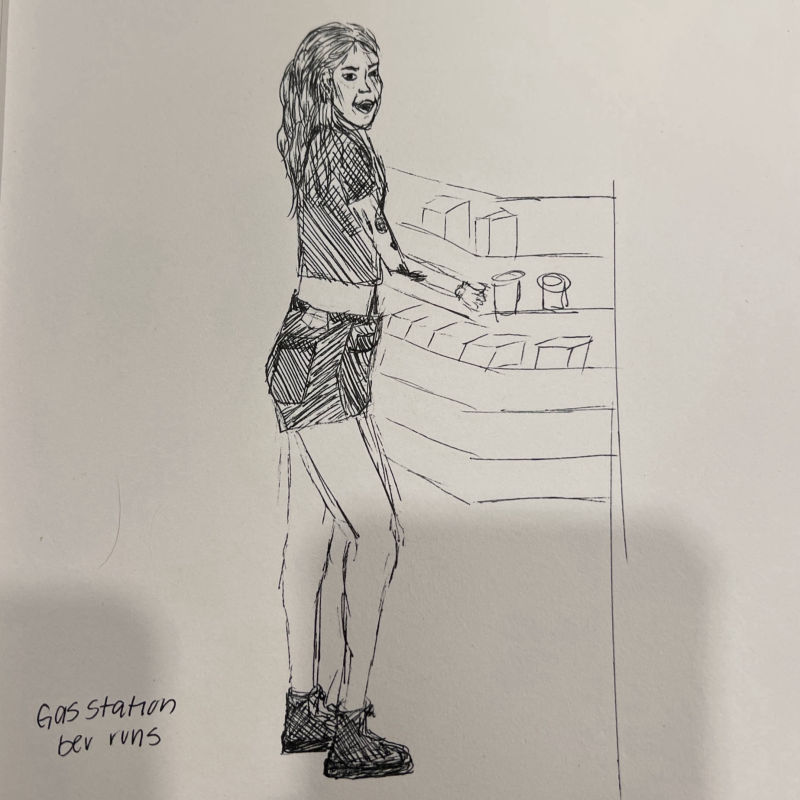 Gas station
bev runs